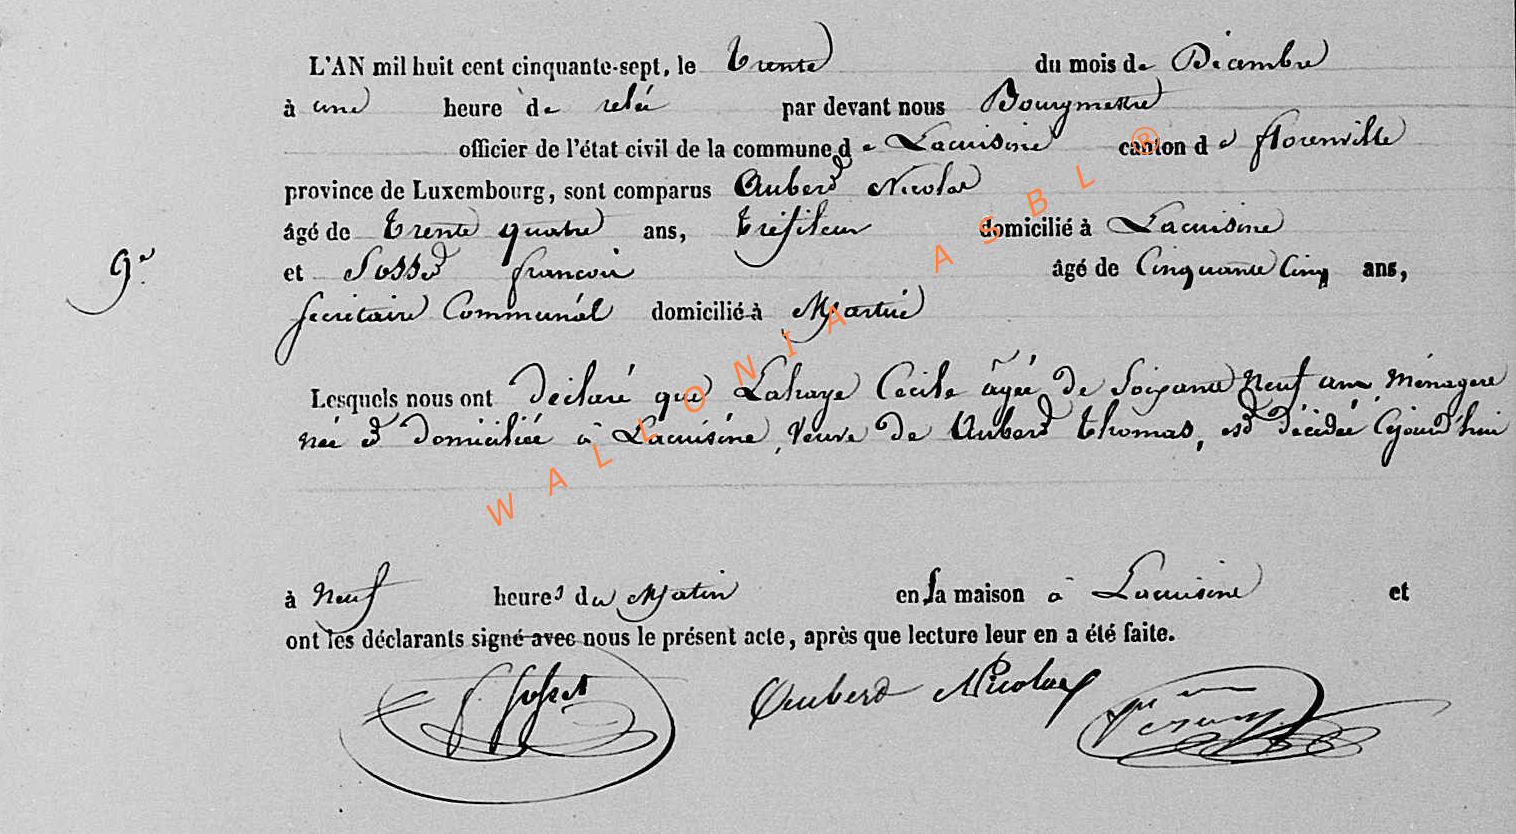 L'AN mil huit cent cinquante-sept, le trente du mois de Décembre
à une heure de relée par devant nous Bourgmestre
officier de l'état civil de la commune de Lacuisine canton de florenville
province de Luxembourg, sont comparus Aubert Nicolas
âgé de trente quatre ans, tréfileur domicilié à Lacuisine
9e et Josset françois âgé de Cinquante Cinq ans,
secrétaire Communal domicilié à Martué
Lesquels nous ont déclaré que Lahaye Cécile âgée de Soixante Neuf ans Ménagere
née et domiciliée à Lacuisine, Veuve de Aubert thomas, est décédée Cejourd'hui
à Neuf heures du Matin en sa maison à Lacuisine et
ont les déclarants signé avec nous le présent acte, après que lecture leur en a été faite.
Aubert Nicolas
WALLONIA ASBL ®